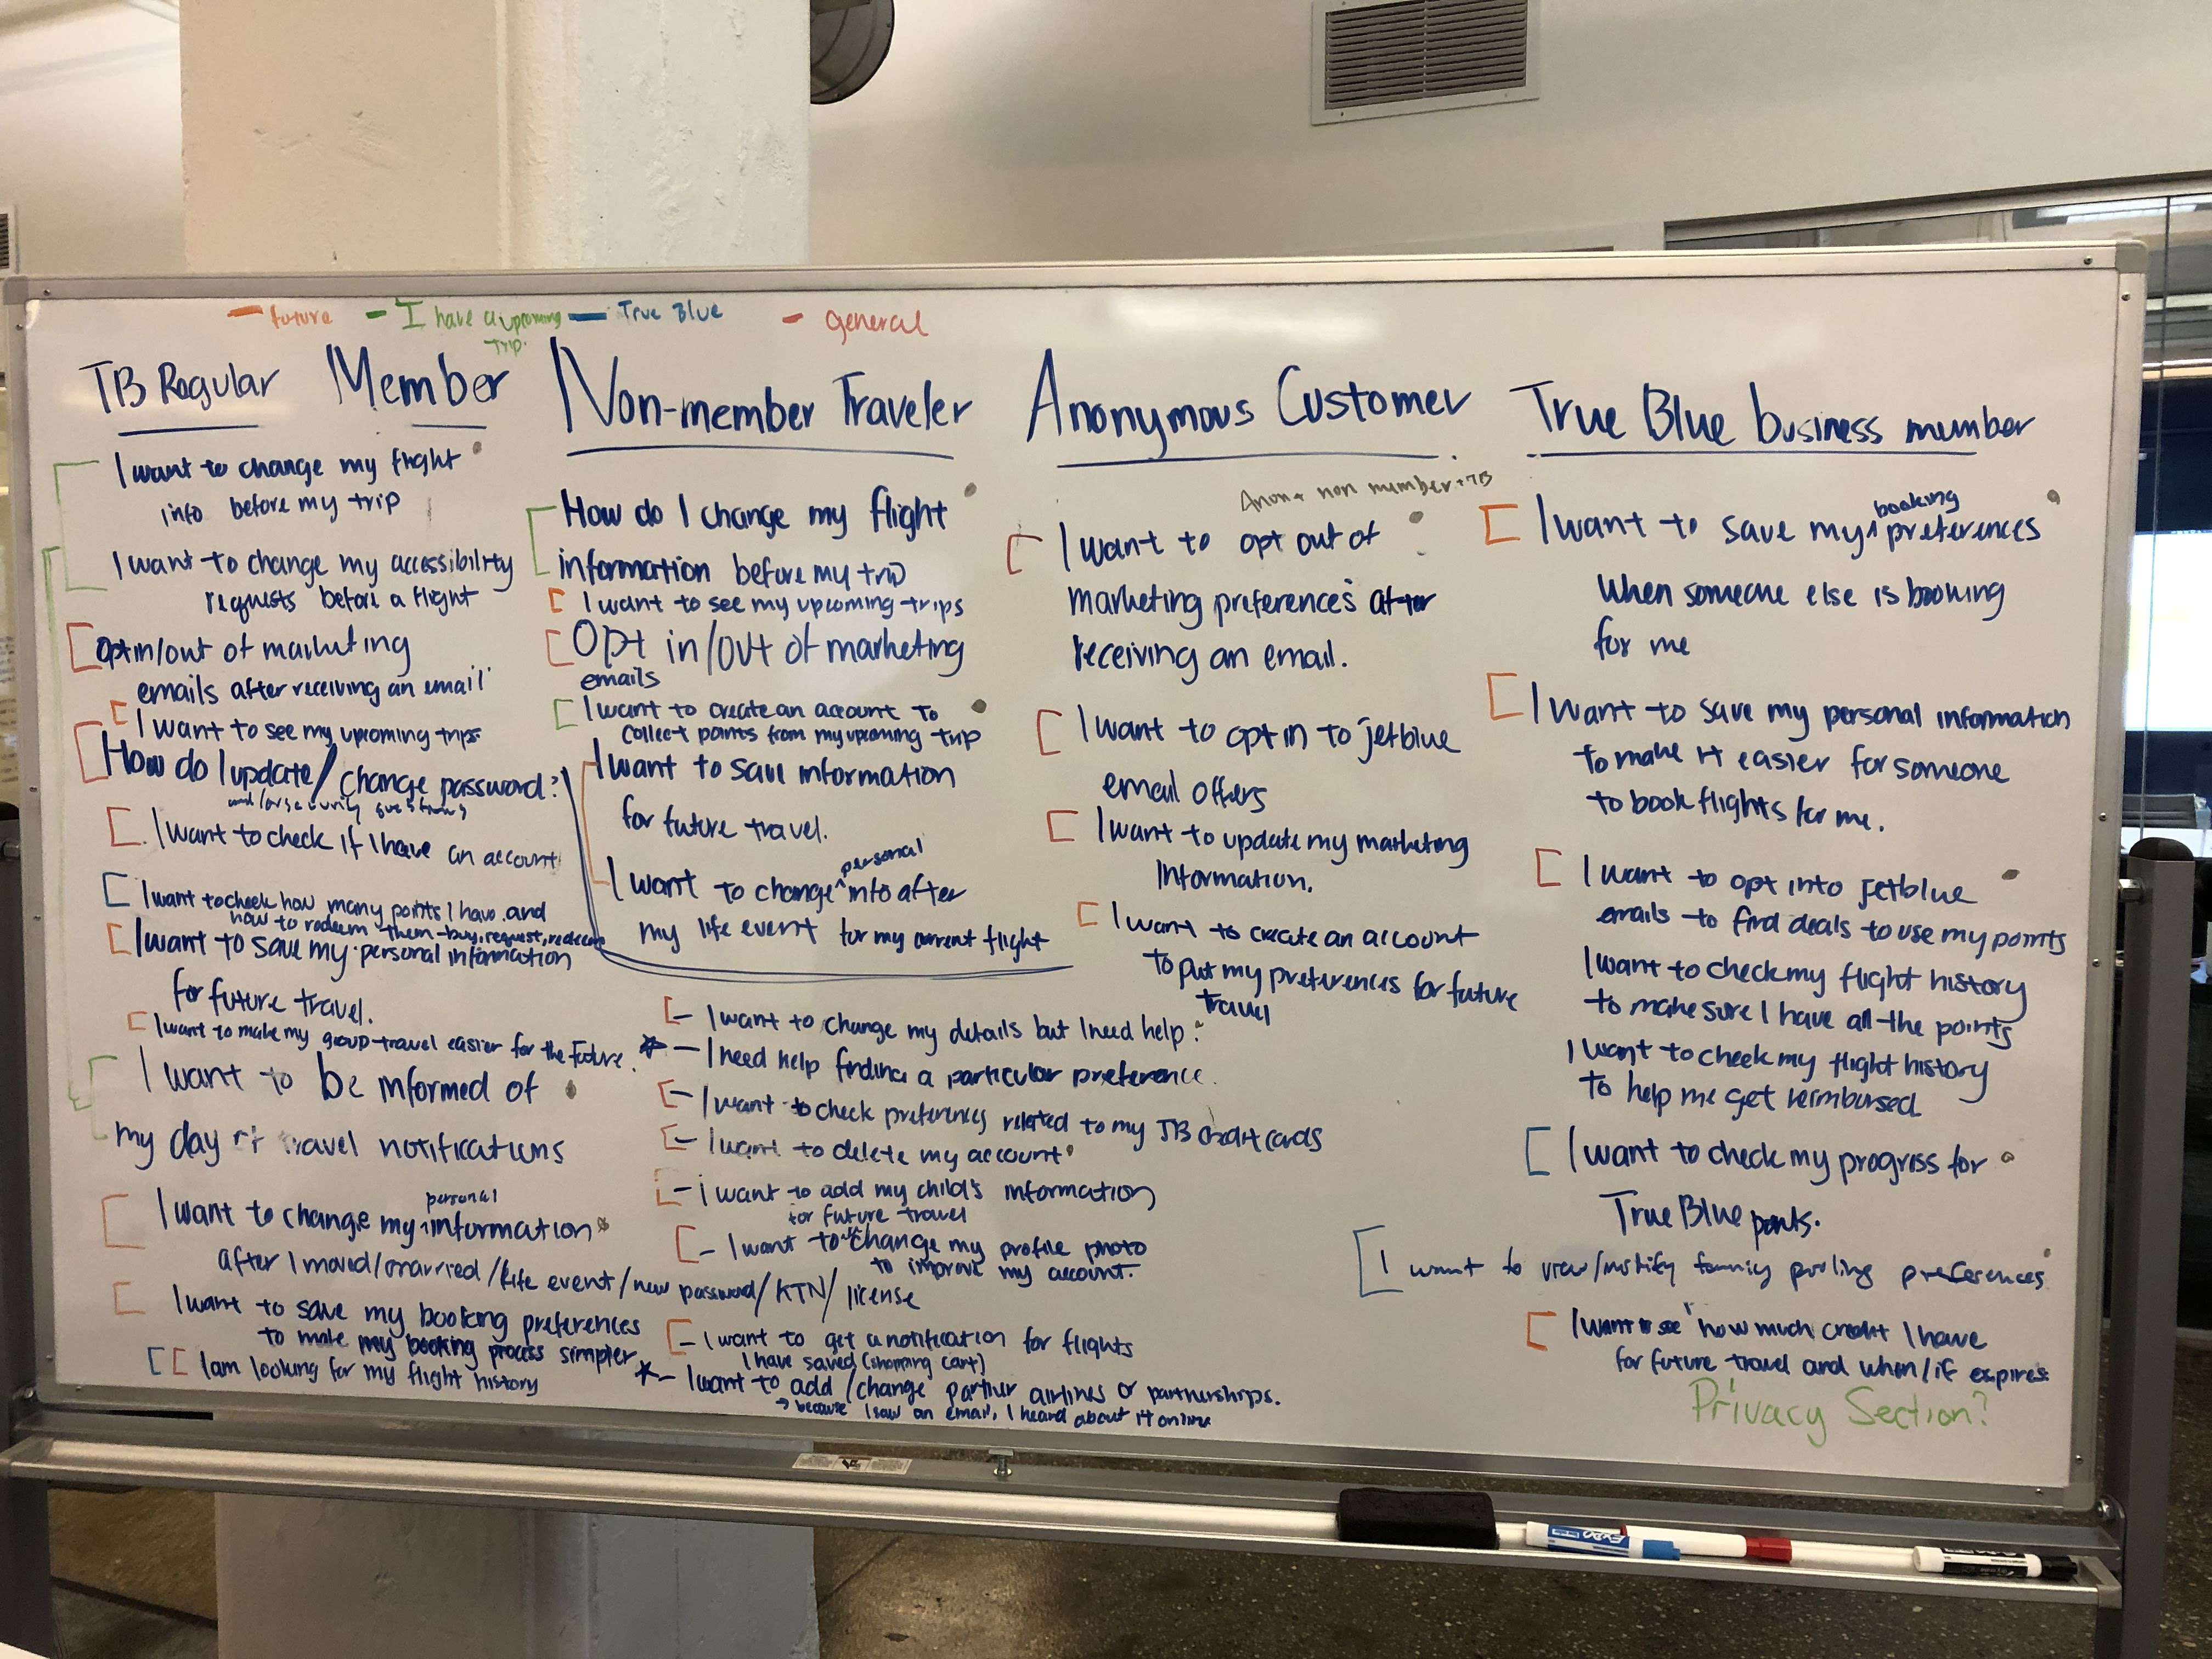 future
I have a upcoming
trip.
True Blue
general
TB Regular Member
I want to change my flight
info before my trip
I want to change my accessibility
requests before a flight
Opt in/out of marketing
emails after receiving an email
I want to see my upcoming trips
How do I update/change password?
and/or security questions
I want to check if I have an account
I want to check how many points I have and
how to redeem them - buy, request, redeem
I want to save my personal information
for future travel.
I want to make my group travel easier for the future.
I want to be informed of
my day of travel notifications
personal
I want to change my ^ information
after I moved/married/life event/new password/KTN/license
I want to save my booking preferences
to make my booking process simpler
I am looking for my flight history
Non-member Traveler
How do I change my flight
information before my trip
I want to see my upcoming trips
Opt in/out of marketing
emails
I want to create an account to
collect points from my upcoming trip
I want to save information
for future travel.
personal
I want to change ^ info after
my life event for my current flight
- I want to change my details but I need help.
* - I need help finding a particular preference.
- I want to check preferences related to my JB credit cards
- I want to delete my account
- i want to add my child's information
for future travel
- I want to change my profile photo
to improve my account.
- I want to get a notification for flights
I have saved (shopping cart)
* - I want to add/change partner airlines or partnerships.
→ because I saw an email, I heard about it online
Anonymous Customer
Anon + non member + TB
I want to opt out of
marketing preferences after
receiving an email.
I want to opt in to jetblue
email offers
I want to update my marketing
Information.
I want to create an account
to put my preferences for future
travel
True Blue business member
booking
I want to save my ^ preferences
when someone else is booking
for me
I want to save my personal information
to make it easier for someone
to book flights for me.
I want to opt into jetblue
emails to find deals to use my points
I want to check my flight history
to make sure I have all the points
I want to check my flight history
to help me get reimbursed
I want to check my progress for
True Blue points.
I want to view/modify family pooling preferences
I want to see how much credit I have
for future travel and when/if expires
Privacy Section?
EXPO